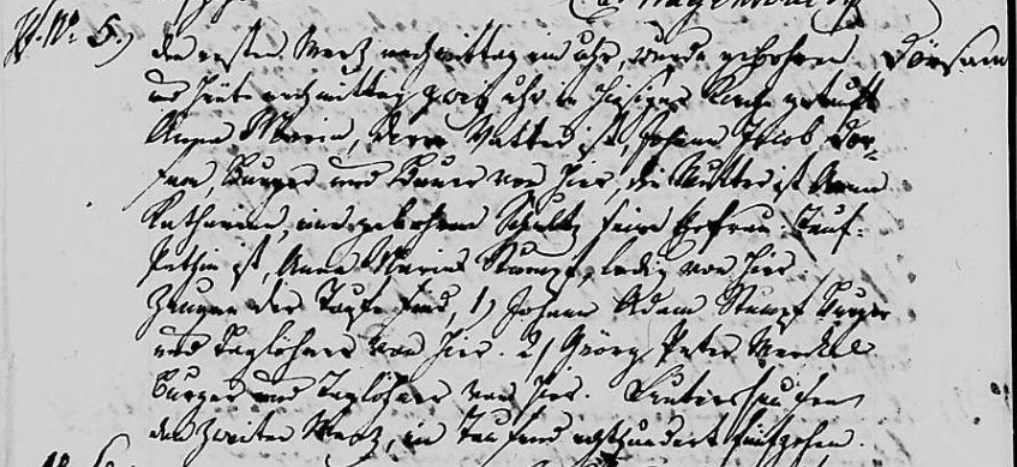 N. No 5.) den ersten Merz nachmittag um uhr, wurde gebohren Dörsam
und heute nachmittag zwey uhr in hiesiger Kirche getauft
Anna Maria, deren Vatter ist, Johann Jacob Dör-
sam, Burger und Bauer von hier, die Mutter ist Anna
Katharina, eine gebohrne Schultz seine Ehefrau. Tauf-
Pethin ist, Anna Maria Stumpf, ledig von hier.
Zeugen der Taufe sind, 1) Johann Adam Stumpf Burger
und Taglöhner von hier. 2) Georg Peter Merckel
Burger und Taglöhner von hier. Leutershausen
den zweiten Merz, im Tausend achthundert fünfzehen.